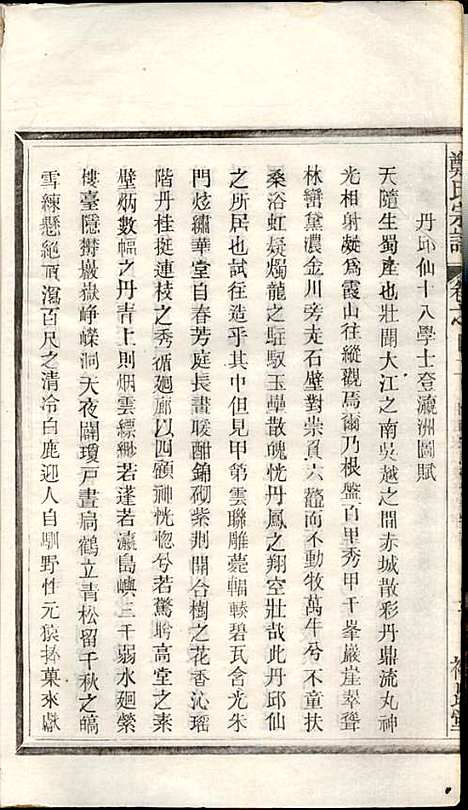 鄭氏宗譜
丹邱仙十八學士登瀛洲圖賦
天隨生蜀產也壯鬭大江之南吳越之間赤城散彩丹鼎流丸神
光相射凝爲霞山往縱觀焉爾乃根盤百里秀甲千峯巖崖翠聳
林巒黛濃金川旁走石壁對崇負六鼇而不動牧萬牛兮不童扶
桑浴虹凝燭龍之駐馭玉轝散魄恍丹鳳之翔空壯哉此丹邱仙
之所居也試往造乎其中但見甲第雲聯雕甍輻輳碧瓦含光朱
門炫繡華堂自春芳庭長晝暖酣錦砌紫荆開合樹之花香沁瑶
階丹桂挺連枝之秀循廻廊以四顧神恍惚兮若驚睇高堂之素
壁炳數幅之丹青上則烟雲縹緲若蓬若瀛島嶼三千弱水廻縈
樓臺隱欝巖嶽崢嶸洞天夜闢瓊戸晝扃鶴立青松留千秋之皜
雪練懸絶頂瀉百尺之清冷白鹿迎人自馴野性元猿捧菓來獻